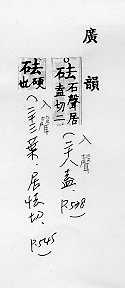 廣韻
砝石聲居盍切二 入聲(二十八盍, P.538)
砝硬也 入聲(三十三業,居怯切, P.545)